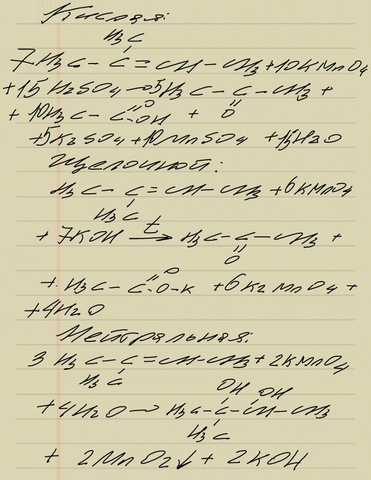 Кислая:
H₃C
7H₃C – C = CH – CH₃ + 10KMnO₄
+ 15H₂SO₄ → 5H₃C – C – CH₃ +
+ 10H₃C – C OH + O
O
+ 5K₂SO₄ + 10MnSO₄ + 15H₂O
Щелочной:
H₃C – C = CH – CH₃ + 6KMnO₄
H₃C
+ 7KOH t → H₃C – C – CH₃ +
O
+ H₃C – C O – K + 6K₂MnO₄ +
O
+ 4H₂O
Нейтральная:
3 H₃C – C = CH – CH₃ + 2KMnO₄
H₃C OH OH
+ 4H₂O → H₃C – C – CH – CH₃
H₃C
+ 2MnO₂↓ + 2KOH